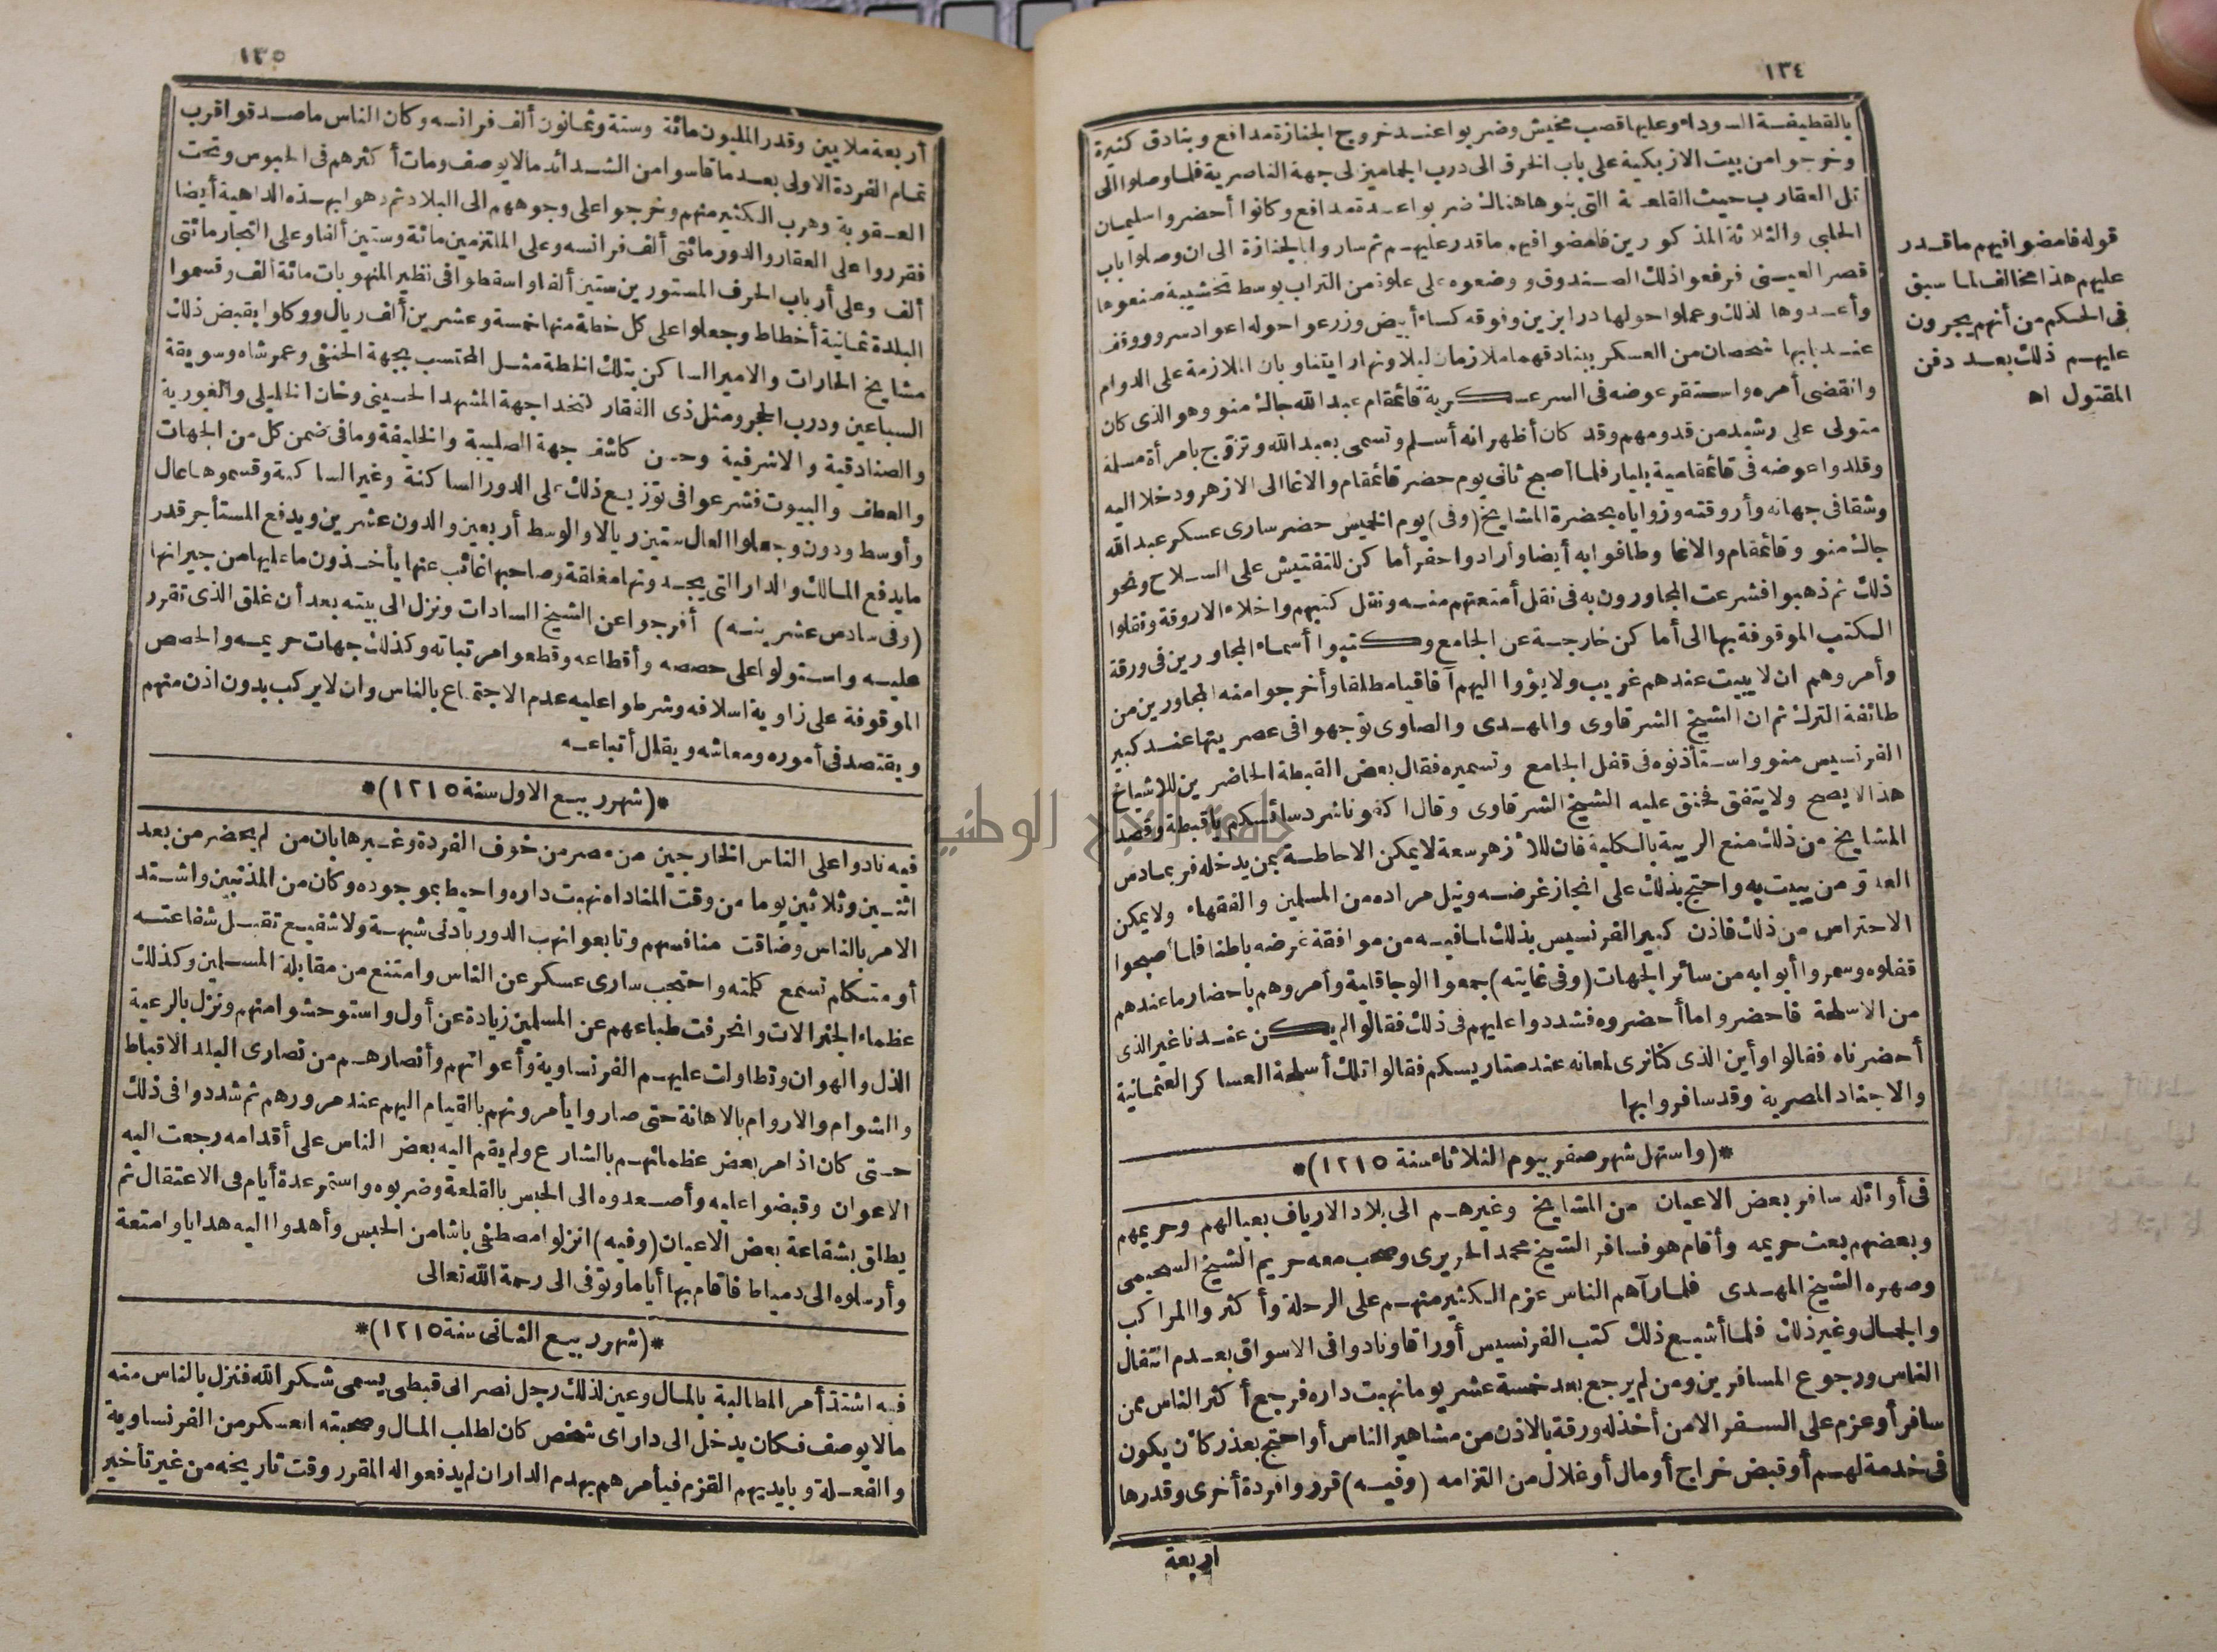 ١٣٤
بالقطيفة السوداء وعليها قصب مخيش وضربوا عند خروج الجنازة مدافع وبنادق كثيرة
وخرجوا من بيت الازبكية على باب الخرق الى درب الجماميز الى جهة الناصرية فلما وصلوا الى
تل العقارب حيث القلعة التى بنوها هناك ضربوا عدة مدافع وكانوا أحضروا سليمان
الحلبى والثلاثة المذكورين فامضوا فيهم ما قدر عليهم ثم ساروا بالجنازة الى ان وصلوا باب
قصر العينى فرفعوا ذلك الصندوق ووضعوه على علوة من التراب بوسط تخشيبة صنعوها
وأعدوها لذلك وعملوا حولها درابزين وفوقه كساء أبيض وزرعوا حوله اعواد سرو ووقف
عند بابها شخصان من العسكر ببنادقهما ملازمان ليلا ونهارا يتناوبان الملازمة على الدوام
وانقضى أمره واستقر عوضه فى السر عسكرية قائمقام عبد الله جاك منو وهو الذى كان
متولى على رشيد من قدومهم وقد كان أظهر انه أسلم وتسمى بعبد الله وتزوج بامرأة مسلمة
وقلدوا عوضه فى قائمقامية بليار فلما أصبح ثانى يوم حضر قائمقام والاغا الى الازهر ودخلا اليه
وشقا فى جهاته وأروقته وزواياه بحضرة المشايخ (وفى) يوم الخميس حضر سارى عسكر عبد الله
جاك منو وقائمقام والاغا وطافوا به أيضا وأرادوا حفر أماكن للتفتيش على السلاح ونحو
ذلك ثم ذهبوا فشرعت المجاورون به فى نقل أمتعتهم منه ونقل كتبهم واخلاء الاروقة ونقلوا
الكتب الموقوفة بها الى أماكن خارجة عن الجامع وكتبوا أسماء المجاورين فى ورقة
وأمروهم ان لا يبيت عندهم غريب ولا يؤوا اليهم آفاقيا مطلقا وأخرجوا منه المجاورين من
طائفة الترك ثم ان الشيخ الشرقاوى والمهدى والصاوى توجهوا فى عصريتها عند كبير
الفرنسيس منو واستأذنوه فى قفل الجامع وتسميره فقال بعض القبطة الحاضرين للاشياخ
هذا لا يصح ولا يتفق فحنق عليه الشيخ الشرقاوى وقال اكفونا شر دسائسكم يا قبطة وقصد
المشايخ من ذلك منع الريبة بالكلية فان للأزهر سعة لا يمكن الاحاطة بمن يدخله فربما دس
العدو من يبيت به واحتج بذلك على انجاز غرضه ونيل مراده من المسلمين والفقهاء ولا يمكن
الاحتراس من ذلك فاذن كبير الفرنسيس بذلك لما فيه من موافقة غرضه باطنا فلما أصبحوا
قفلوه وسمروا أبوابه من سائر الجهات (وفى غايته) جمعوا الوجاقلية وأمروهم باحضار ما عندهم
من الاسلحة فاحضروا ما أحضروه فشددوا عليهم فى ذلك فقالوا لم يكن عندنا غير الذى
أحضرناه فقالوا وأين الذى كنا نرى لمعانه عند متاريسكم فقالوا تلك أسلحة العساكر العثمانية
والاجناد المصرية وقد سافروا بها
*(واستهل شهر صفر بيوم الثلاثاء سنة ١٢١٥)*
فى أوائله سافر بعض الاعيان من المشايخ وغيرهم الى بلاد الارياف بعيالهم وحريمهم
وبعضهم بعث حريمه وأقام هو فسافر الشيخ محمد الحريرى وصحب معه حريم الشيخ السحيمى
وصهره الشيخ المهدى فلما رآهم الناس عزم الكثير منهم على الرحلة وأكثروا المراكب
والجمال وغير ذلك فلما أشيع ذلك كتب الفرنسيس أوراقا ونادوا فى الاسواق بعدم انتقال
الناس ورجوع المسافرين ومن لم يرجع بعد خمسة عشر يوما نهبت داره فرجع أكثر الناس ممن
سافر أو عزم على السفر الا من أخذ له ورقة بالاذن من مشاهير الناس أو احتج بعذر كأن يكون
فى خدمة لهم أو قبض خراج أو مال أو غلال من التزامه (وفيه) قرروا فردة أخرى وقدرها
اربعة
قوله فامضوا فيهم ما قدر
عليهم هذا مخالف لما سبق
فى الحكم من أنهم يجرون
عليهم ذلك بعد دفن
المقتول اه
١٣٥
أربعة ملايين وقدر المليون مائة وستة وثمانون ألف فرانسه وكان الناس ما صدقوا قرب
تمام الفردة الاولى بعد ما قاسوا من الشدائد ما لا يوصف ومات أكثرهم فى الحبوس وتحت
العقوبة وهرب الكثير منهم وخرجوا على وجوههم الى البلاد ثم دهوا بهذه الداهية أيضا
فقرروا على العقار والدور مائتى ألف فرانسه وعلى الملتزمين مائة وستين ألفا وعلى التجار مائتى
ألف وعلى أرباب الحرف المستورين ستين ألفا واسقطوا فى نظير المنهوبات مائة ألف وقسموا
البلدة ثمانية أخطاط وجعلوا على كل خطة منها خمسة وعشرين ألف ريال ووكلوا بقبض ذلك
مشايخ الحارات والامير الساكن بتلك الخطة مثل المحتسب بجهة الحنفى وعمر شاه وسويقة
السباعين ودرب الحجر ومثل ذى الفقار كتخدا جهة المشهد الحسينى وخان الخليلى والغورية
والصنادقية والاشرفية وحسن كاشف جهة الصليبة والخليفة وما فى ضمن كل من الجهات
والعطف والبيوت فشرعوا فى توزيع ذلك على الدور الساكنة وغير الساكنة وقسموها عال
وأوسط ودون وجعلوا العال ستين ريالا والوسط أربعين والدون عشرين ويدفع المستأجر قدر
ما يدفع المالك والدار التى يجدونها مغلقة وصاحبها غائب عنها يأخذون ما عليها من جيرانها
(وفى سادس عشرينه) أفرجوا عن الشيخ السادات ونزل الى بيته بعد أن غلق الذى تقرر
عليه واستولوا على حصصه وأقطاعه وقطعوا مرتباته وكذلك جهات حريمه والحصص
الموقوفة على زاوية اسلافه وشرطوا عليه عدم الاجتماع بالناس وان لا يركب بدون اذن منهم
ويقتصد فى أموره ومعاشه ويقلل أتباعه
*(شهر ربيع الاول سنة ١٢١٥)*
فيه نادوا على الناس الخارجين من مصر من خوف الفردة وغيرها بان من لم يحضر من بعد
اثنين وثلاثين يوما من وقت المناداه نهبت داره واحيط بموجوده وكان من المذنبين واشتد
الامر بالناس وضاقت منافسهم وتابعوا نهب الدور بأدنى شبهة ولا شفيع تقبل شفاعته
أو متكلم تسمع كلمته واحتجب سارى عسكر عن الناس وامتنع من مقابلة المسلمين وكذلك
عظماء الجنرالات وانحرفت طباعهم عن المسلمين زيادة عن أول واستوحشوا منهم ونزل بالرعية
الذل والهوان وتطاولت عليهم الفرنساوية وأعوانهم وأنصارهم من نصارى البلد الاقباط
والشوام والاروام بالاهانة حتى صاروا يأمرونهم بالقيام اليهم عند مرورهم ثم شددوا فى ذلك
حتى كان اذا مر بعض عظمائهم بالشارع ولم يقم اليه بعض الناس على أقدامه رجعت اليه
الاعوان وقبضوا عليه وأصعدوه الى الحبس بالقلعة وضربوه واستمر عدة أيام فى الاعتقال ثم
يطلق بشفاعة بعض الاعيان (وفيه) انزلوا مصطفى باشا من الحبس وأهدوا اليه هدايا وامتعة
وأرسلوه الى دمياط فاقام بها أياما وتوفى الى رحمة الله تعالى
*(شهر ربيع الثانى سنة ١٢١٥)*
فيه اشتد أمر المطالبة بالمال وعين لذلك رجل نصرانى قبطى يسمى شكر الله فنزل بالناس منه
ما لا يوصف فكان يدخل الى دار اى شخص كان لطلب المال وصحبته العسكر من الفرنساوية
والفعلة وبايديهم القزم فيأمرهم بهدم الدار ان لم يدفعوا له المقرر وقت تاريخه من غير تأخير
جامعة النجاح الوطنية